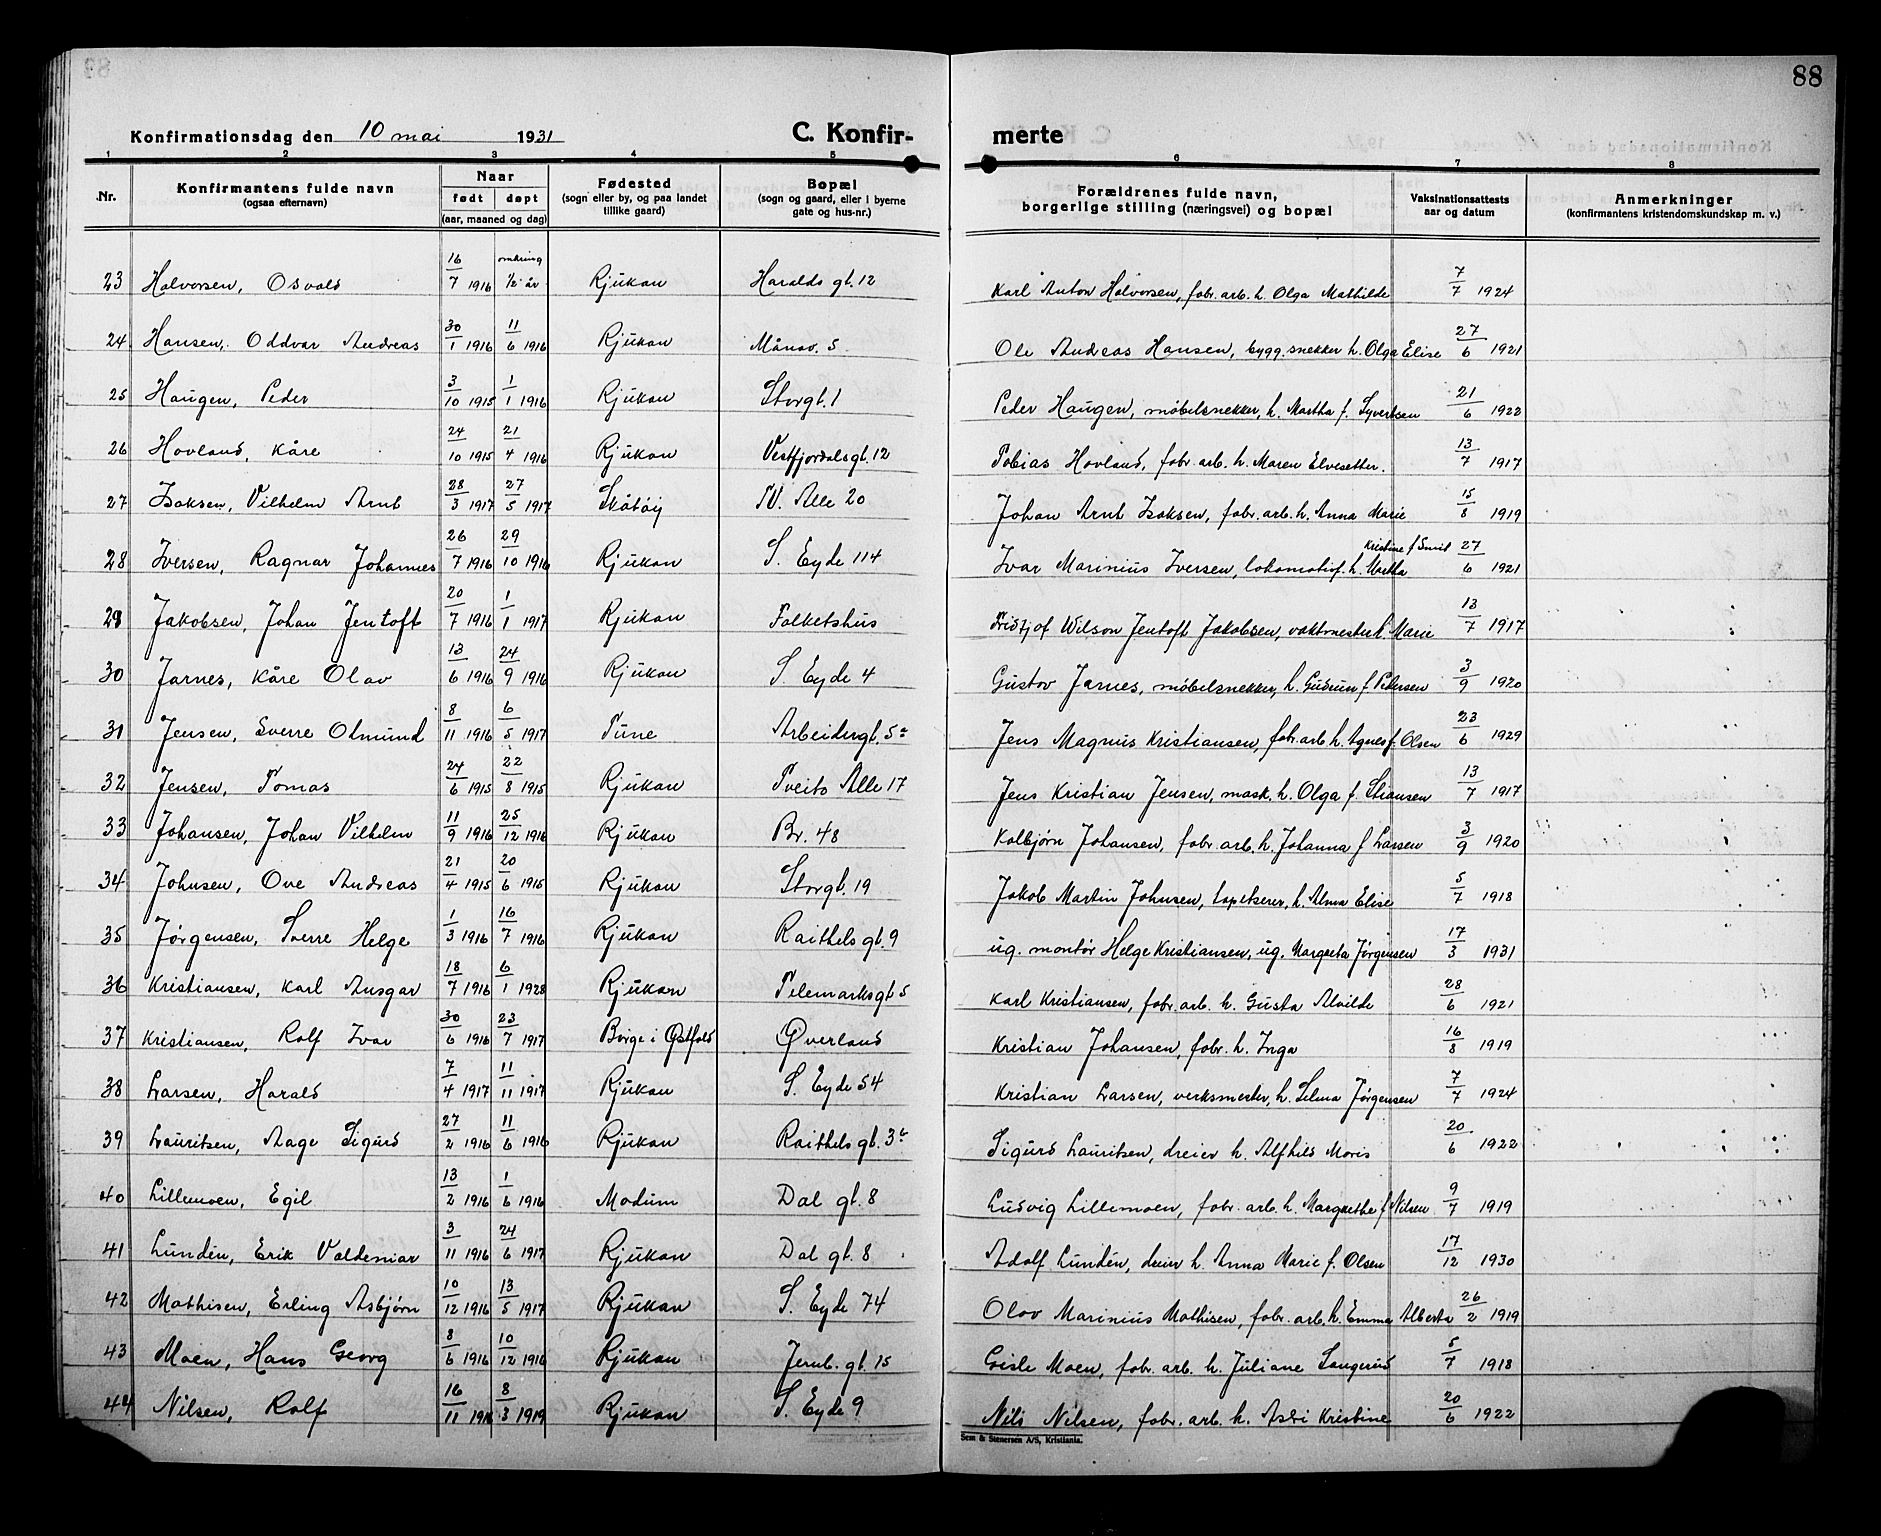 88
Konfirmationsdag den 10 mai 1931
C. Konfir- merte
1 2 3 4 5 6 7 8
Nr. Konfirmantens fulde navn (ogsaa efternavn) Naar født døpt (aar, maaned og dag) Fødested (sogn eller by, og paa landet tillike gaard) Bopæl (sogn og gaard, eller i byerne gate og hus-nr.) Forældrenes fulde navn, borgerlige stilling (næringsvei) og bopæl Vaksinationsattests aar og datum Anmerkninger (konfirmantens kristendomskundskap m. v.)
23 Halvorsen, Osvald 16/7 1916 omkring 1/2 år Rjukan Haralds gt. 12 Karl Anton Halvorsen, fabr. arb. h. Olga Mathilde 7/7 1924
24 Hansen, Oddvar Andreas 30/1 1916 11/6 1916 Rjukan Månav. 5 Ole Andreas Hansen, bygg.snekker h. Olga Elise 27/6 1921
25 Haugen, Peder 3/10 1915 1/1 1916 Rjukan Storgt. 1 Peder Haugen, møbelsnekker, h. Martha f. Syvertsen 21/6 1922
26 Hovland, Kåre 24/10 1915 21/4 1916 Rjukan Vestfjordalsgt. 12 Tobias Hovland, fabr. arb. h. Maren Elvesetter. 13/7 1917
27 Isaksen, Vilhelm Arnt 28/3 1917 27/5 1917 Skåtøy TV. Alle 20 Johan Arnt Isaksen, fabr. arb. h. Anna Marie 15/8 1919
28 Iversen, Ragnar Johannes 26/7 1916 29/10 1916 Rjukan S. Eyde 114 Ivar Marinius Iversen, lokomotivf. h. Martha Kristine f Smit 27/6 1921
29 Jakobsen, Johan Jentoft 20/7 1916 1/1 1917 Rjukan Folketshus Fridtjof Wilson Jentoft Jakobsen, vaktmester h. Marie 13/7 1917
30 Jarnes, Kåre Olav 13/6 1916 24/9 1916 Rjukan S. Eyde 4 Gustav Jarnes, møbelsnekker, h. Gudrun f Petersen 3/9 1920
31 Jensen, Sverre Olmund 8/11 1916 6/5 1917 Tune Arbeidergt. 5a Jens Magnus Kristiansen, fabr. arb. h. Agnes f. Olsen 23/6 1929
32 Jensen, Tomas 24/6 1915 22/8 1915 Rjukan Tveito Alle 17 Jens Kristian Jensen, mask. h. Olga f. Stiansen 13/7 1917
33 Johansen, Johan Vilhelm 11/9 1916 25/12 1916 Rjukan Br. 48 Kolbjørn Johansen, fabr. arb. h. Johanna f Larsen 3/9 1920
34 Johnsen, Ove Andreas 21/4 1915 20/6 1915 Rjukan Storgt. 19 Jakob Martin Johnsen, tapetserer, h. Alma Elise 5/7 1918
35 Jørgensen, Sverre Helge 1/3 1916 16/7 1916 Rjukan Raithels gt. 9 ug. montør Helge Kristiansen, ug. Margreta Jørgensen 17/3 1931
36 Kristiansen, Karl Ansgar 18/7 1916 6/1 1928 Rjukan Telemarksgt 5 Karl Kristiansen, fabr. arb. h. Gusta Alvilde 28/6 1921
37 Kristiansen, Rolf Ivar 30/6 1916 23/7 1917 Borge i Østfold Øverland Kristian Johansen, fabr. h. Inga 16/8 1919
38 Larsen, Harald 7/4 1917 11/11 1917 Rjukan S. Eyde 54 Kristian Larsen, verksmester, h. Selma Jørgensen 7/7 1924
39 Lauritsen, Aage Sigurd 27/2 1916 11/6 1916 Rjukan Raithels gt. 3b Sigurd Lauritsen, dreier h. Alfhild Moris 20/6 1922
40 Lillemoen, Egil 13/2 1916 1/6 1916 Modum Dal gt. 8 Ludvig Lillemoen, fabr. arb. h. Margrethe f Nilsen 9/7 1919
41 Lundén, Erik Valdemar 3/11 1916 24/6 1917 Rjukan Dal gt. 8 Adolf Lundén, dreier h. Anna Marie f. Olsen 17/12 1930
42 Mathisen, Erling Asbjørn 10/12 1916 13/5 1917 Rjukan S. Eyde 74 Olav Marinius Mathisen, fabr. arb. h. Emma Alberta 26/2 1919
43 Moen, Hans Georg 8/6 1916 10/12 1916 Rjukan Jernb. gt. 15 Gisle Moen, fabr. arb. h. Juliane Langerud 5/7 1918
44 Nilsen, Rolf 16/11 1918 8/3 1919 Rjukan S. Eyde 9 Nils Nilsen, fabr. arb. h. Astri Kristine 20/6 1922
Sem & Stenersen A/S, Kristiania.